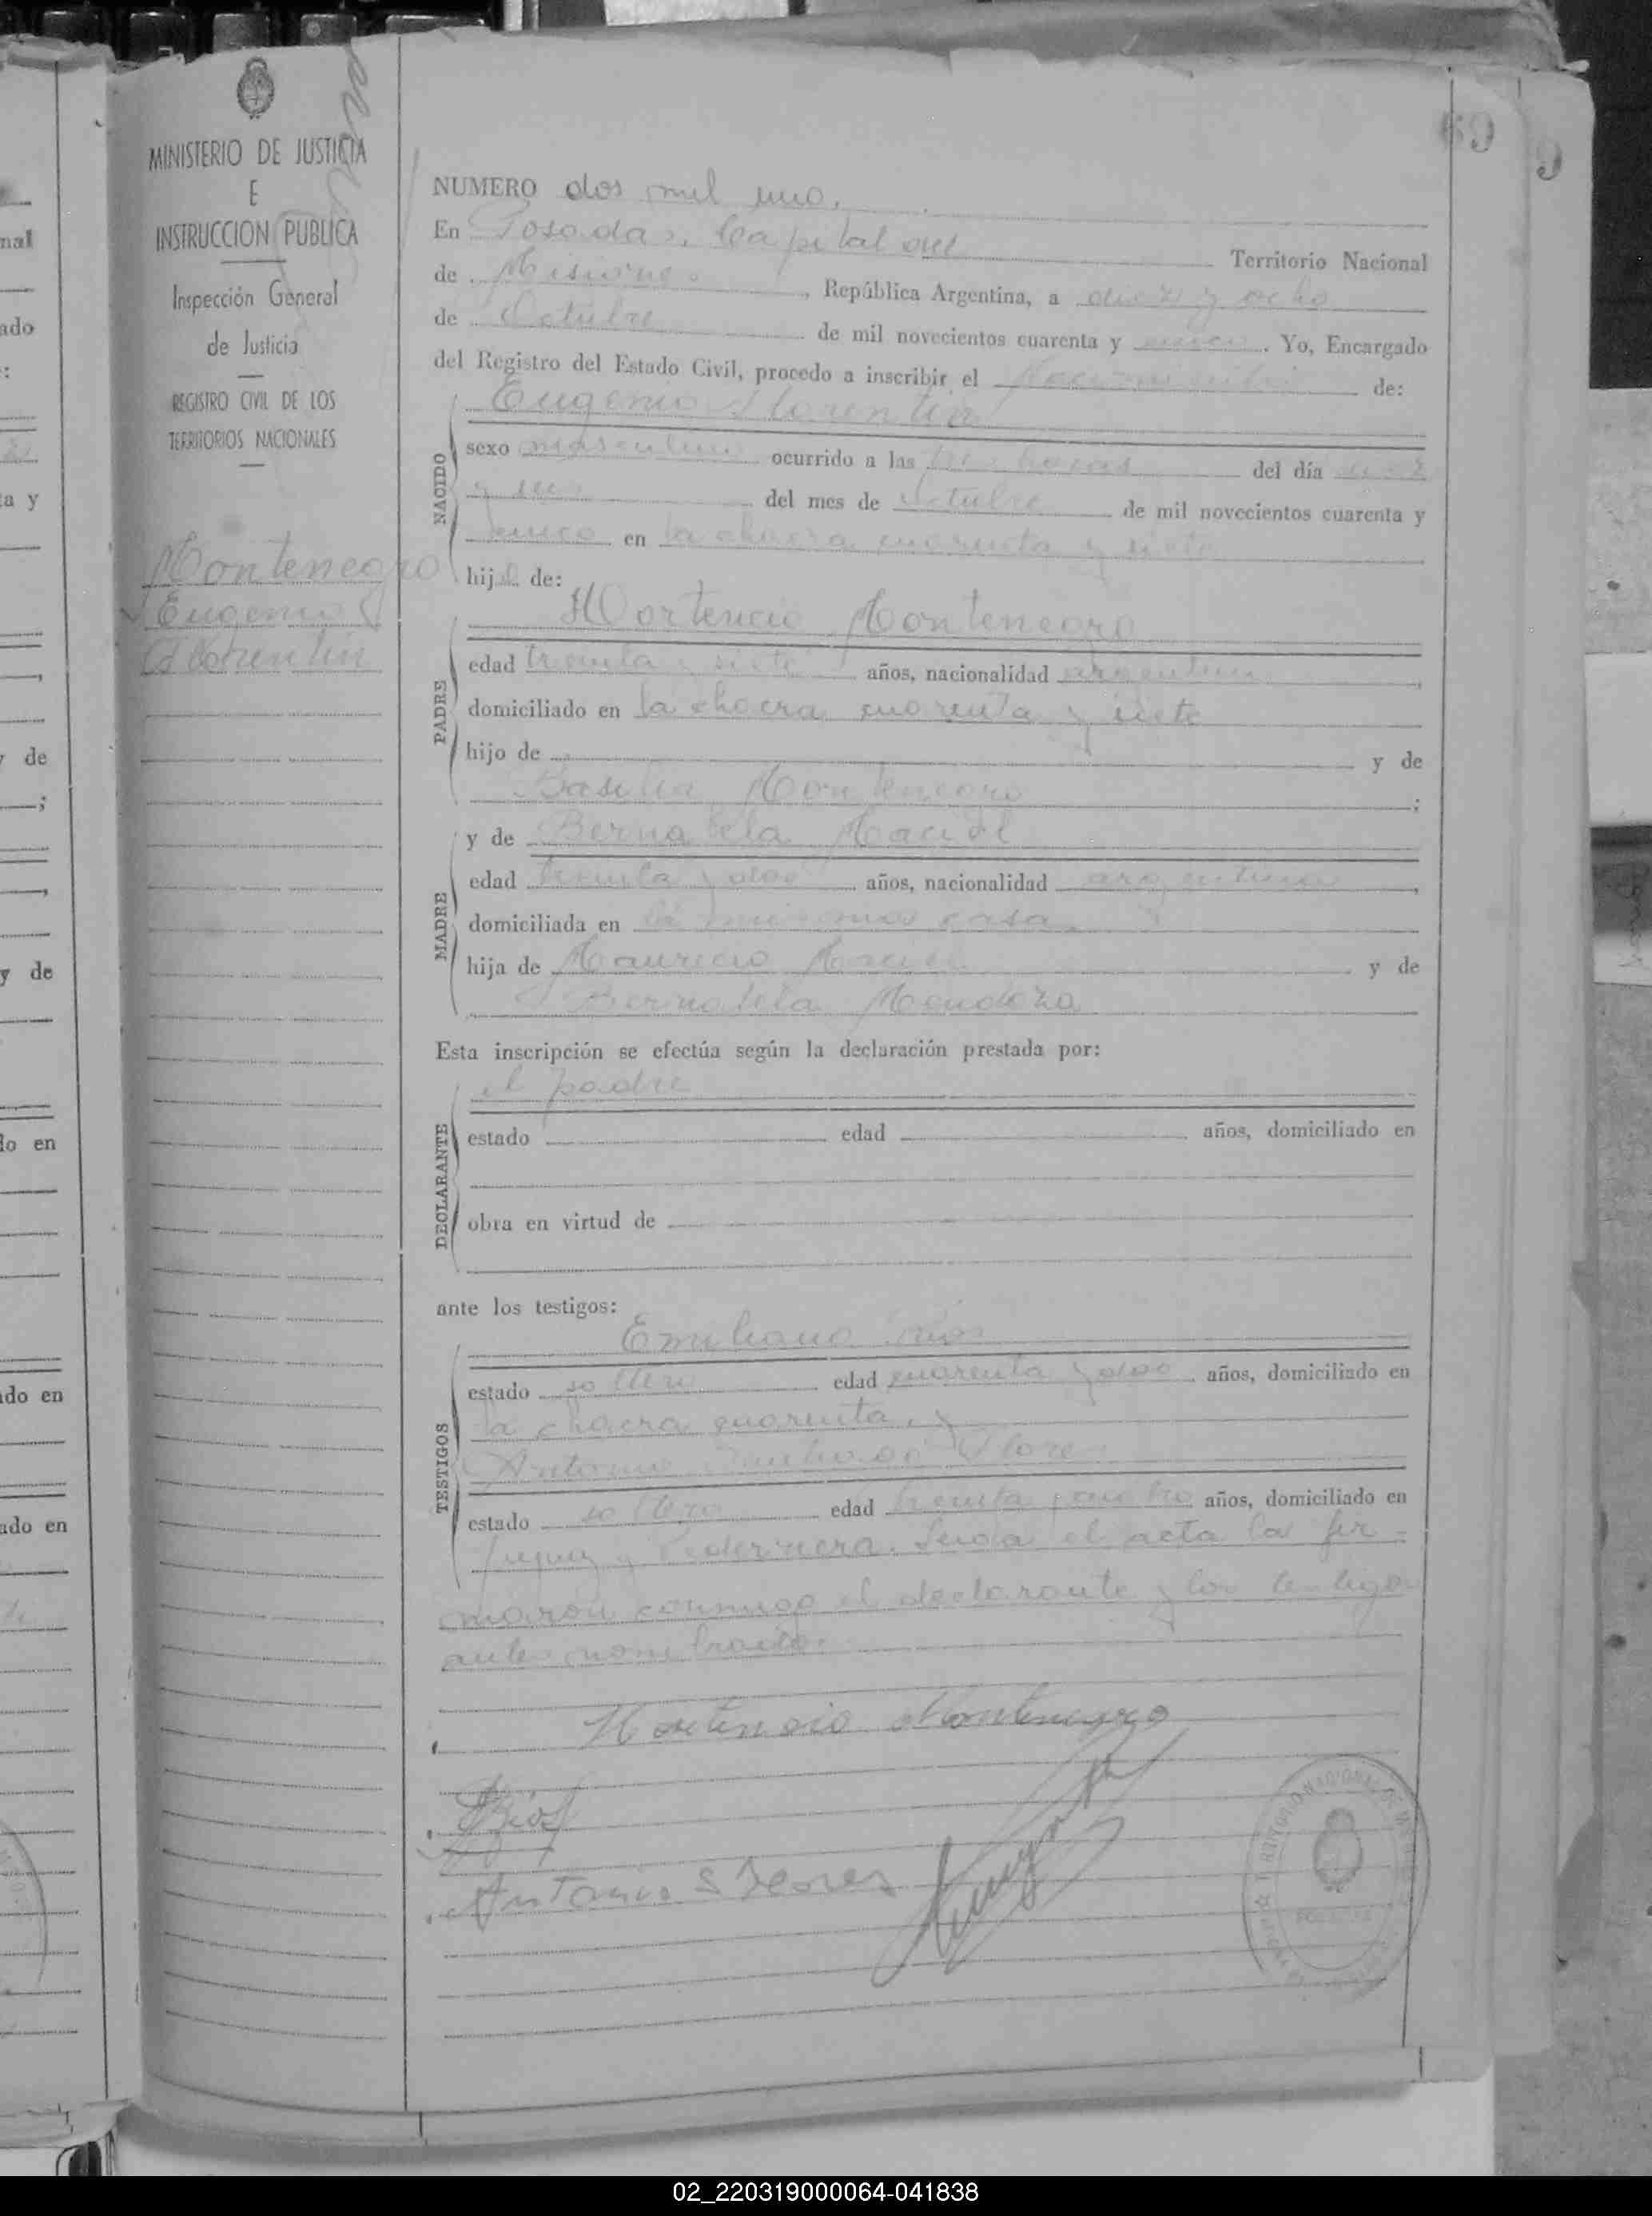 69
9
MINISTERIO DE JUSTICIA
E
INSTRUCCION PUBLICA
Inspección General
de Justicia
REGISTRO CIVIL DE LOS
TERRITORIOS NACIONALES
Montenegro
Eugenio
Florentin
NUMERO dos mil uno.
En Posadas, Capital del Territorio Nacional
de Misiones, República Argentina, a diez y ocho
de Octubre de mil novecientos cuarenta y cinco. Yo, Encargado
del Registro del Estado Civil, procedo a inscribir el Nacimiento de:
Eugenio Florentin
NACIDO
sexo masculino ocurrido a las tres horas del día diez
y del mes de Octubre de mil novecientos cuarenta y
cinco en la chacra cuarenta y siete
hijo de:
Hortencio Montenegro
PADRE
edad treinta y siete años, nacionalidad argentina,
domiciliado en la chacra cuarenta y siete
hijo de y de
Basilia Montenegro;
y de Bernabela Maciel
MADRE
edad treinta y dos años, nacionalidad argentina,
domiciliada en la misma casa.
hija de Mauricio Maciel y de
Bernabela Mendoza
Esta inscripción se efectúa según la declaración prestada por:
el padre
DECLARANTE
estado edad años, domiciliado en
obra en virtud de
ante los testigos:
Emiliano Rios
TESTIGOS
estado soltero edad cuarenta y dos años, domiciliado en
la chacra cuarenta, y
Antonio Flores
estado soltero edad treinta y cuatro años, domiciliado en
Jujuy y Pedernera. Leida el acta la fir=
maron conmigo el declarante y los testigos
antes nombrados.
Hortencio Montenegro
Rios
Antonio S Flores
02_220319000064-041838